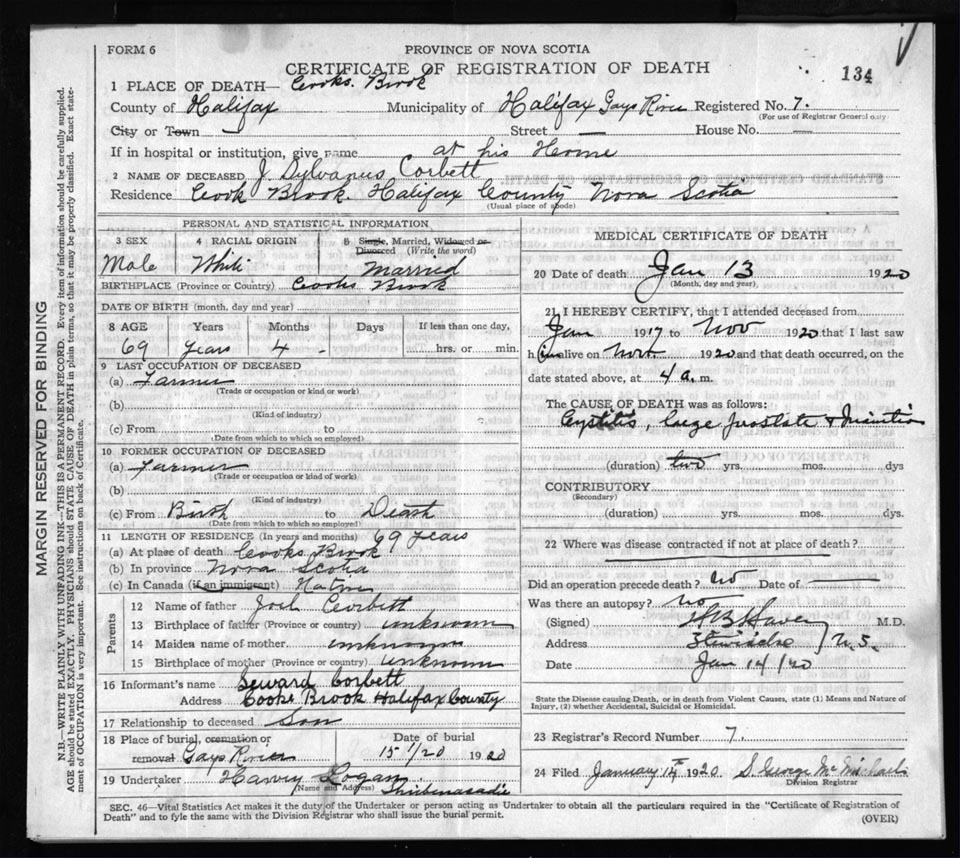 FORM 6
PROVINCE OF NOVA SCOTIA
CERTIFICATE OF REGISTRATION OF DEATH
134
1 PLACE OF DEATH— Cooks. Brook
County of Halifax Municipality of Halifax Gays River Registered No. 7.
(For use of Registrar General only)
City or Town Street — House No. —
If in hospital or institution, give name at his Home
2 NAME OF DECEASED J. Sylvanus Corbett
Residence Cook Brook. Halifax County Nova Scotia
(Usual place of abode)
PERSONAL AND STATISTICAL INFORMATION
3 SEX 4 RACIAL ORIGIN 5 Single, Married, Widowed or
Divorced (Write the word)
Male White Married
BIRTHPLACE (Province or Country) Cooks Brook
DATE OF BIRTH (month, day and year)
8 AGE Years Months Days If less than one day,
69 years 4 - hrs. or min.
9 LAST OCCUPATION OF DECEASED
(a) Farmer
(Trade or occupation or kind or work)
(b)
(Kind of industry)
(c) From to
(Date from which to which so employed)
10 FORMER OCCUPATION OF DECEASED
(a) Farmer
(Trade or occupation or kind of work)
(b)
(Kind of industry)
(c) From Birth to Death
(Date from which to which so employed)
11 LENGTH OF RESIDENCE (In years and months) 69 years
(a) At place of death Cooks Brook
(b) In province Nova Scotia
(c) In Canada (if an immigrant) Native
Parents
12 Name of father Joel Corbett
13 Birthplace of father (Province or country) unknown
14 Maiden name of mother unknown
15 Birthplace of mother (Province or country) unknown
16 Informant's name Seward Corbett
Address Cooks Brook Halifax County
17 Relationship to deceased Son
18 Place of burial, cremation or Date of burial
removal Gays River 15 1/20 1920
19 Undertaker Harvey Logan
(Name and Address) Shubenacadie
MEDICAL CERTIFICATE OF DEATH
20 Date of death Jan 13 1920
(Month, day and year)
21 I HEREBY CERTIFY, that I attended deceased from
Jan 1917 to Nov 1920 that I last saw
him alive on Nov. 1920 and that death occurred, on the
date stated above, at 4 a. m.
The CAUSE OF DEATH was as follows:
Cystitis, large prostate & Inanition
(duration) two yrs. mos. dys
CONTRIBUTORY
(Secondary)
(duration) yrs. mos. dys.
22 Where was disease contracted if not at place of death?
Did an operation precede death? no Date of —
Was there an autopsy? no
(Signed) M.D.
Address Stewiacke N.S.
Date Jan 14/20
State the Disease causing Death, or in death from Violent Causes, state (1) Means and Nature of
Injury, (2) whether Accidental, Suicidal or Homicidal.
23 Registrar's Record Number 7.
24 Filed January 14th 1920 S. George McMichael
Division Registrar
SEC. 46—Vital Statistics Act makes it the duty of the Undertaker or person acting as Undertaker to obtain all the particulars required in the "Certificate of Registration of
Death" and to fyle the same with the Division Registrar who shall issue the burial permit.
(OVER)
MARGIN RESERVED FOR BINDING
N.B.—WRITE PLAINLY WITH UNFADING INK—THIS IS A PERMANENT RECORD. Every item of information should be carefully supplied.
AGE should be stated EXACTLY. PHYSICIANS should STATE CAUSE OF DEATH in plain terms, so that it may be properly classified. Exact state-
ment of OCCUPATION is very important. See instructions on back of Certificate.